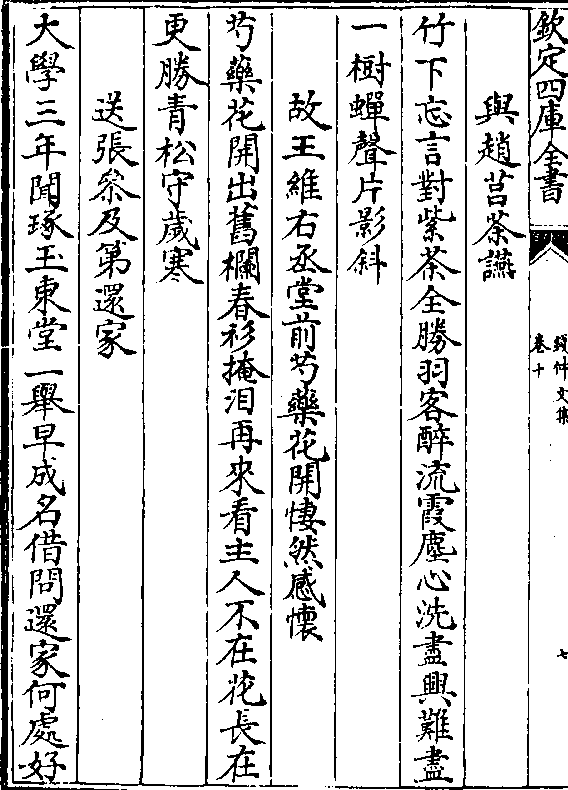 欽定四庫全書
錢仲文集
卷十
七
與趙莒茶讌
竹下忘言對紫茶全勝羽客醉流霞塵心洗盡興難盡
一樹蟬聲片影斜
故王維右丞堂前芍藥花開悽然感懷
芍藥花開出舊欄春衫掩泪再來看主人不在花長在
更勝青松守歲寒
送張叅及第還家
大學三年聞琢玉東堂一舉早成名借問還家何處好